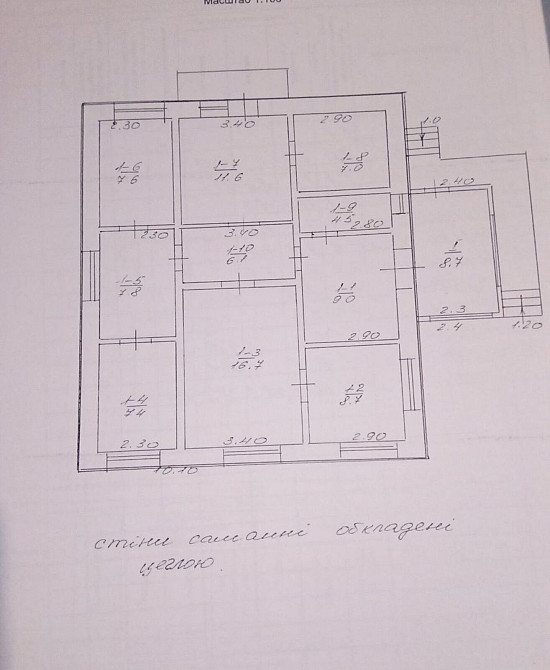 Масштаб 1:100
1.0
2.30
3.40
2.90
1-6
7.6
1-7
11.6
1-8
7.0
2.40
1-9
4.5
2.80
2.30
3.40
1-10
6.1
I
8.7
1-5
7.8
1-1
9.0
2.3
2.4
1.20
2.90
1-3
16.7
1-4
7.4
1-2
8.7
2.30
3.40
2.90
10.10
стіни саманні обкладені
цеглою.